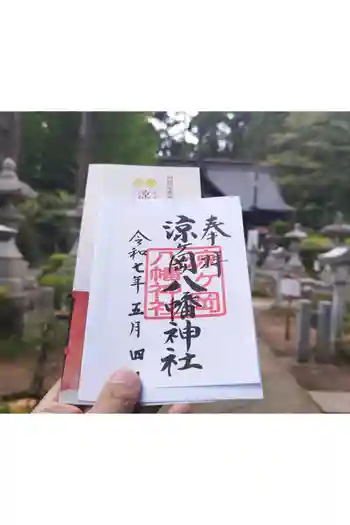 奉拝
涼ケ岡八幡神社
令和七年五月四
涼ケ岡
八幡神社
涼